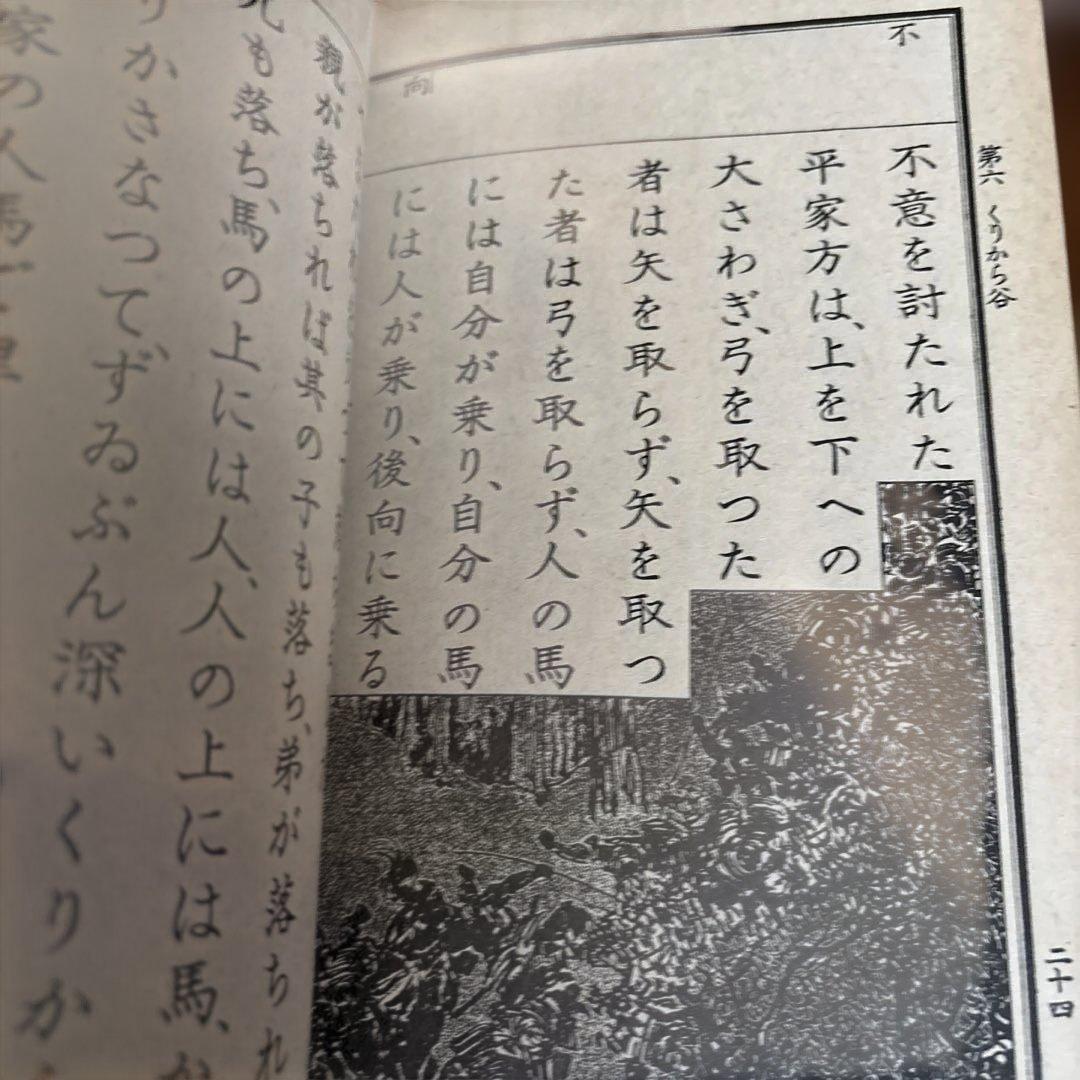 不
向
第六 くりから谷
不意を討たれた
平家方は、上を下への
大さわぎ、弓を取つた
者は矢を取らず、矢を取つ
た者は弓を取らず、人の馬
には自分が乗り、自分の馬
には人が乗り、後向に乗る
二十四
親が落ちれば其の子も落ち、弟が落ちれ
も落ち、馬の上には人、人の上には馬、か
りかさなつて、ずゐぶん深いくりか
家の人馬